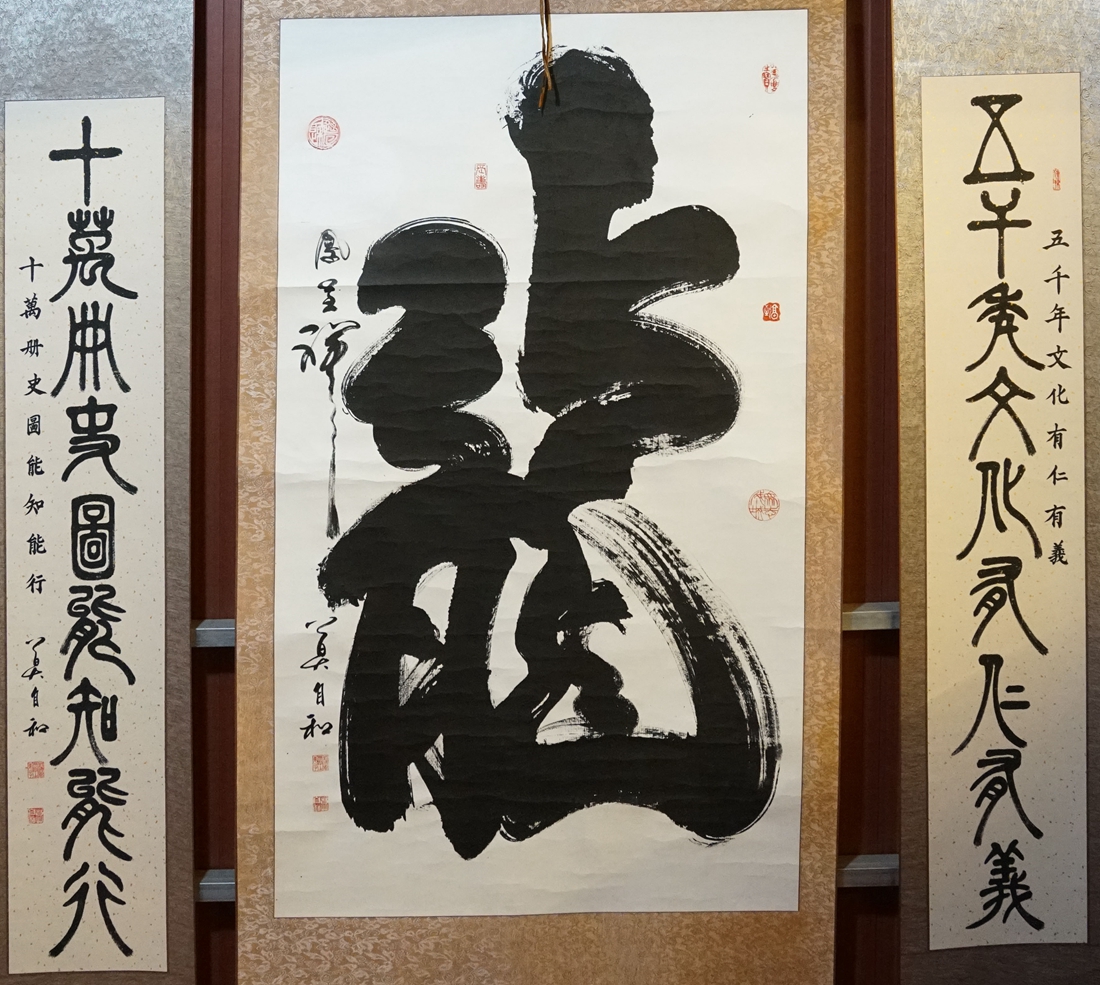 五千年文化有仁有義
五千年文化有仁有義
龍
鳳呈祥
自和
十萬册史圖能知能行
十萬册史圖能知能行
自和